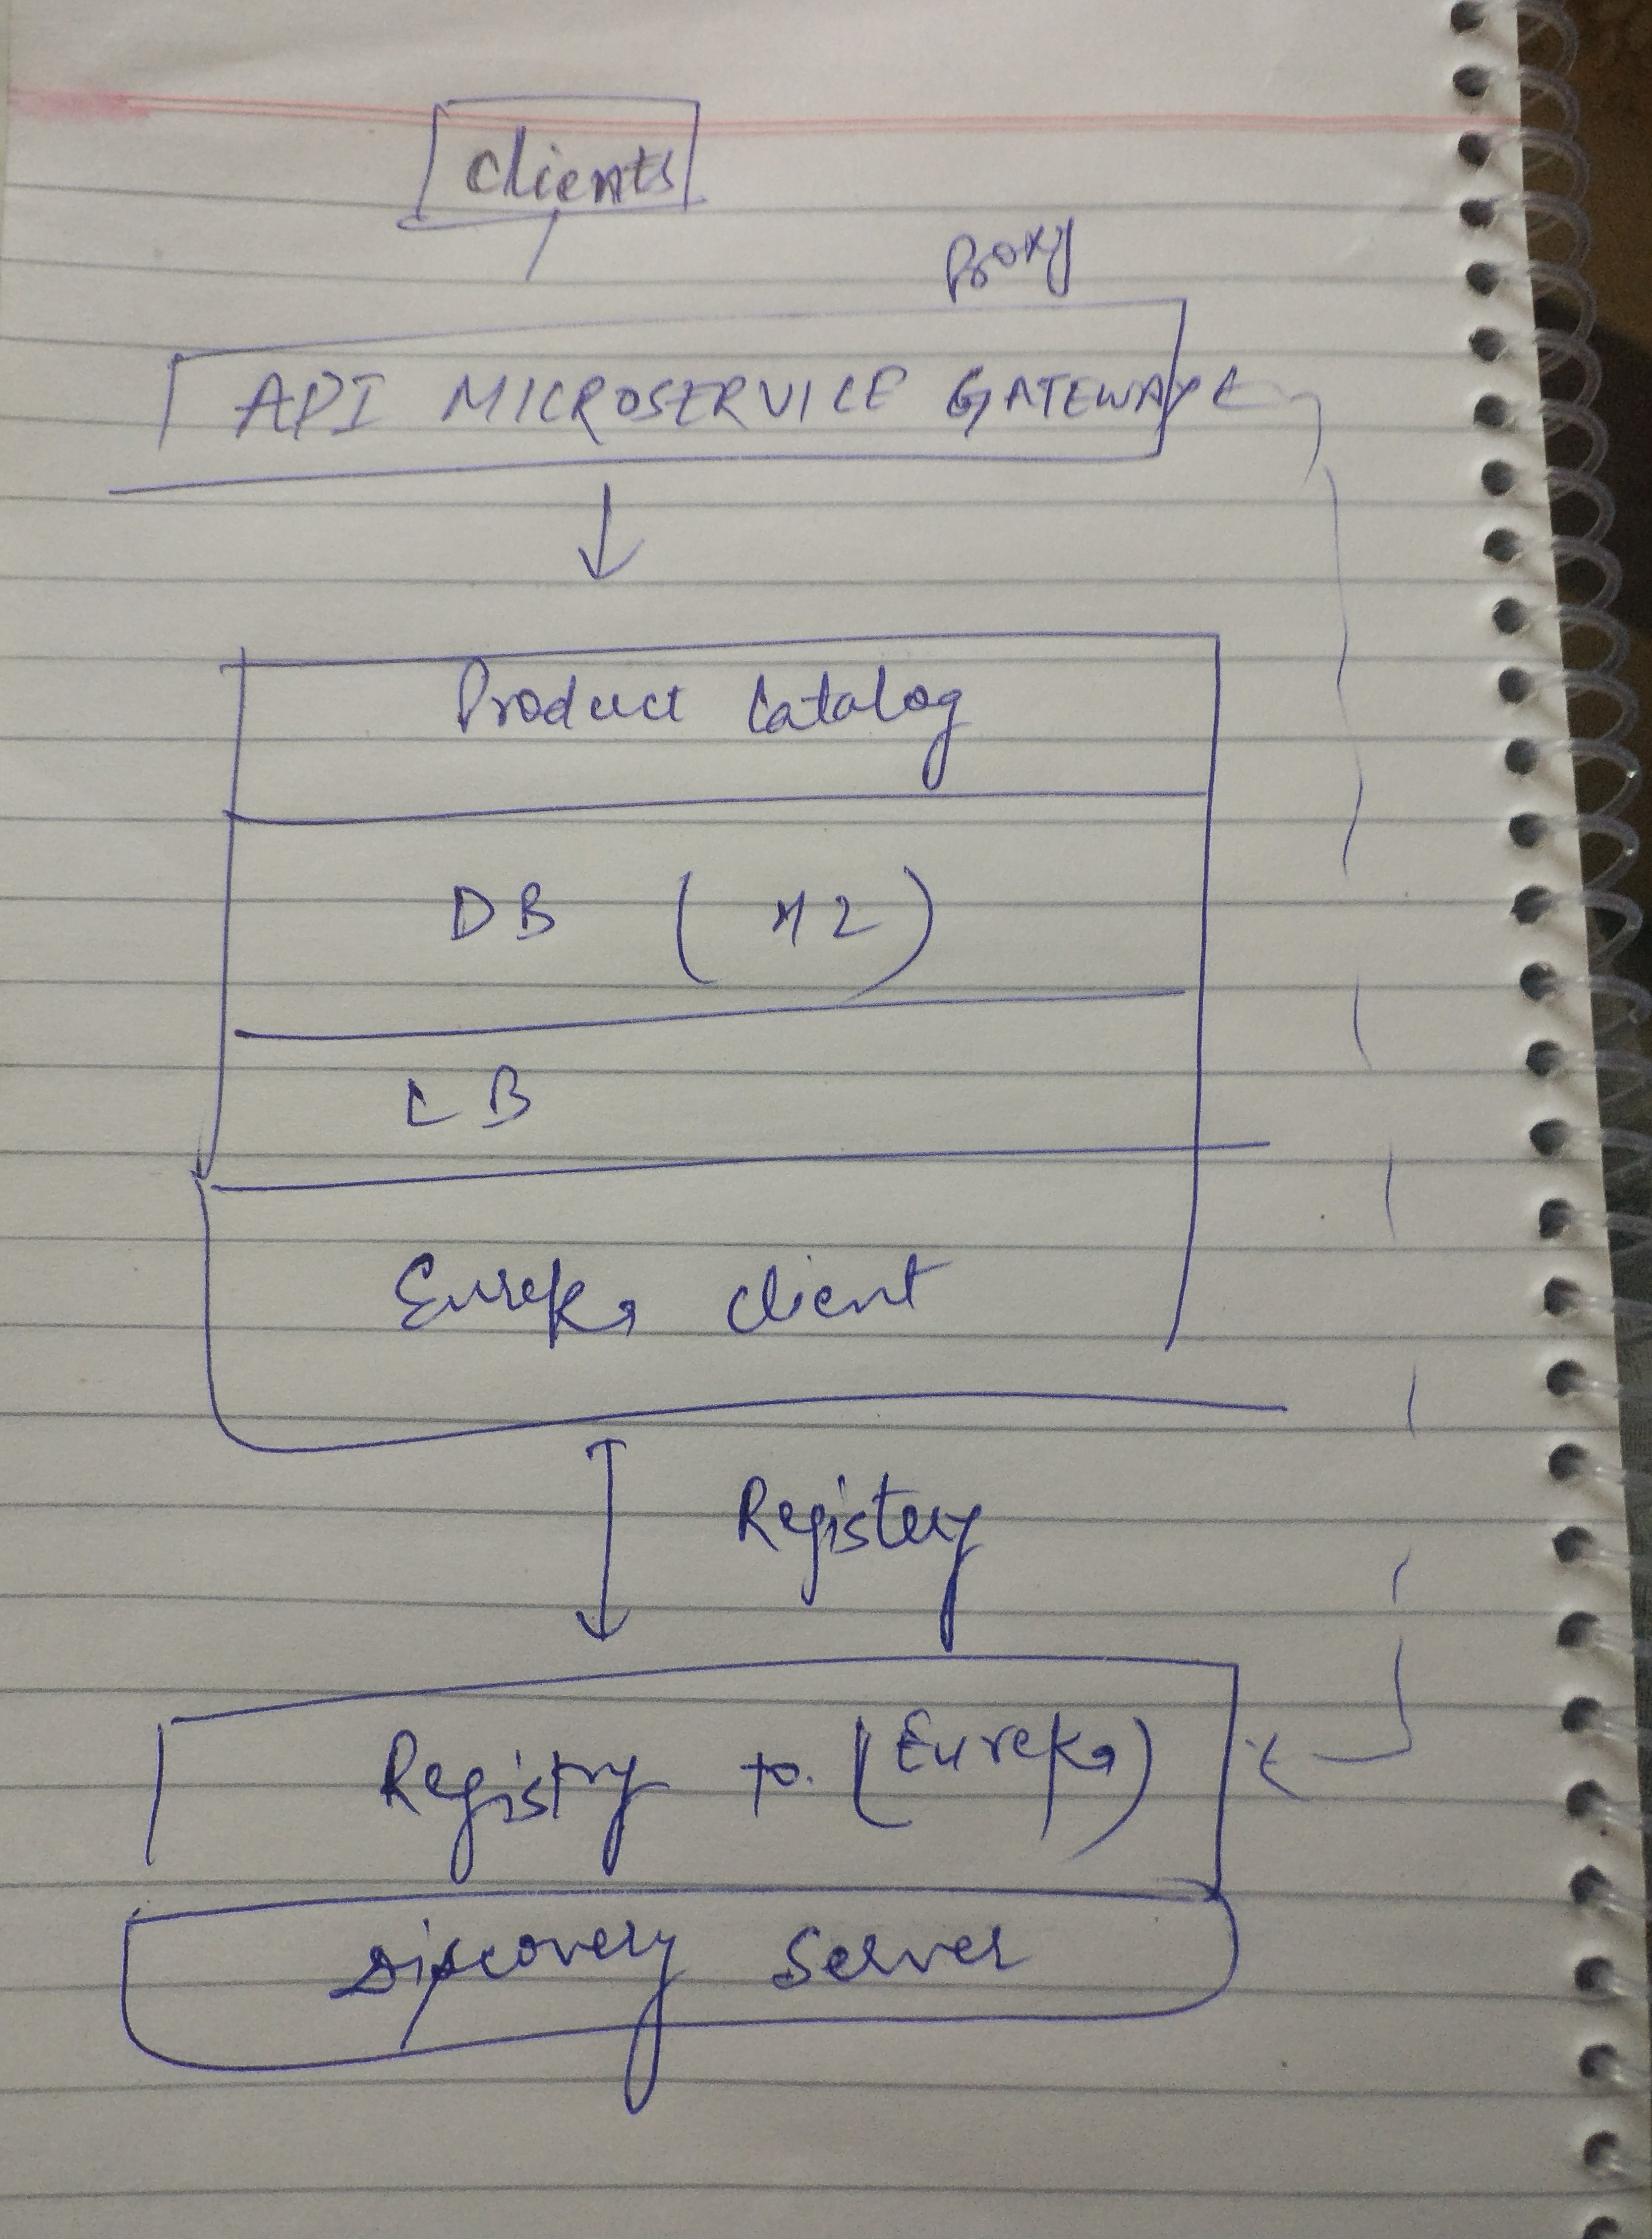 Clients
Proxy
API MICROSERVICE GATEWAY
Product Catalog
DB (H2)
CB
Eureka client
Registery
Registry to (Eureka)
Discovery Server